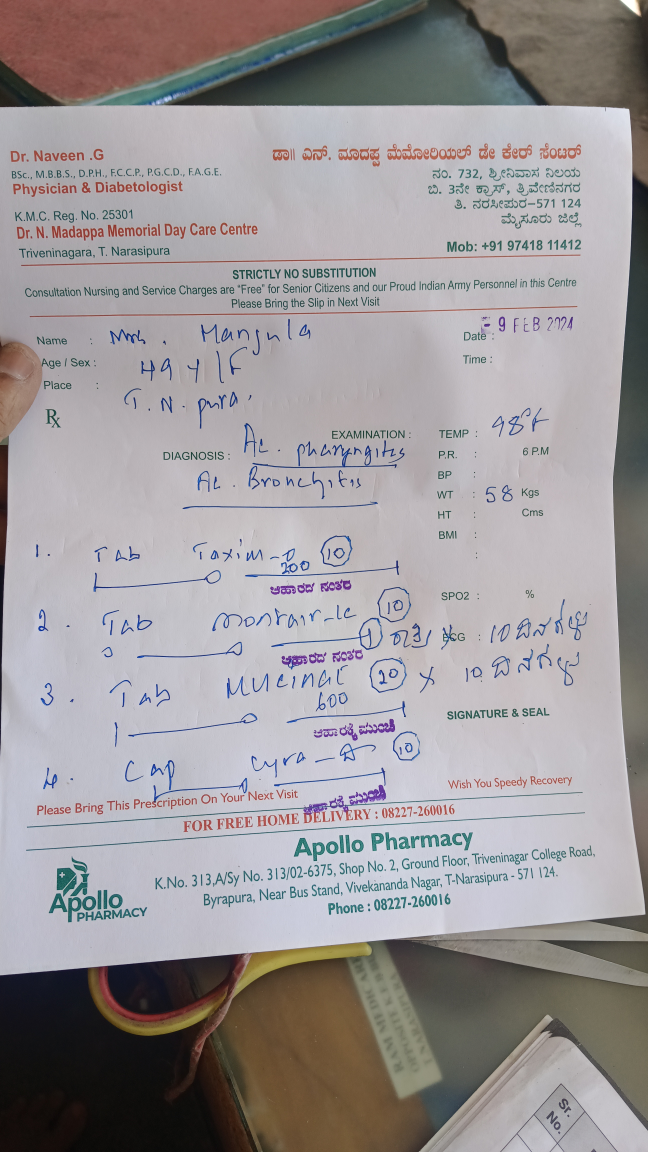 Dr. Naveen .G
BSc., M.B.B.S., D.P.H., F.C.C.P., P.G.C.D., F.A.G.E.
Physician & Diabetologist
K.M.C. Reg. No. 25301
Dr. N. Madappa Memorial Day Care Centre
Triveninagara, T. Narasipura
ಡಾ|| ಎನ್. ಮಾದಪ್ಪ ಮೆಮೋರಿಯಲ್ ಡೇ ಕೇರ್ ಸೆಂಟರ್
ನಂ. 732, ಶ್ರೀನಿವಾಸ ನಿಲಯ
ಬಿ. 3ನೇ ಕ್ರಾಸ್, ತ್ರಿವೇಣಿನಗರ
ತಿ. ನರಸೀಪುರ-571 124
ಮೈಸೂರು ಜಿಲ್ಲೆ
Mob: +91 97418 11412
STRICTLY NO SUBSTITUTION
Consultation Nursing and Service Charges are "Free" for Senior Citizens and our Proud Indian Army Personnel in this Centre
Please Bring the Slip in Next Visit
Name : Mrs. Mangula
Date : - 9 FEB 2024
Age / Sex : 49 Y / F
Time :
Place : T. N. pura.
Rx
EXAMINATION :
DIAGNOSIS : Ac. pharyngitis
Ac. Bronchitis
TEMP : 98°F
P.R. : 6 P.M
BP :
WT : 58 Kgs
HT : Cms
BMI :
:
1. Tab Taxim-o 10
200
ಆಹಾರದ ನಂತರ
SPO2 : %
2. Tab montair-lc 10
1 ರಾತ್ರಿ x 10 ದಿನಗಳು
ECG :
ಆಹಾರದ ನಂತರ
3. Tab Mucinac 20 x 10 ದಿನಗಳು
600
ಆಹಾರಕ್ಕೆ ಮುಂಚೆ
SIGNATURE & SEAL
4. Cap Cyra-D 10
ಆಹಾರಕ್ಕೆ ಮುಂಚೆ
Please Bring This Prescription On Your Next Visit
Wish You Speedy Recovery
FOR FREE HOME DELIVERY : 08227-260016
Apollo Pharmacy
K.No. 313,A/Sy No. 313/02-6375, Shop No. 2, Ground Floor, Triveninagar College Road,
Byrapura, Near Bus Stand, Vivekananda Nagar, T-Narasipura - 571 124.
Phone : 08227-260016
Apollo
PHARMACY
Sr.
No.